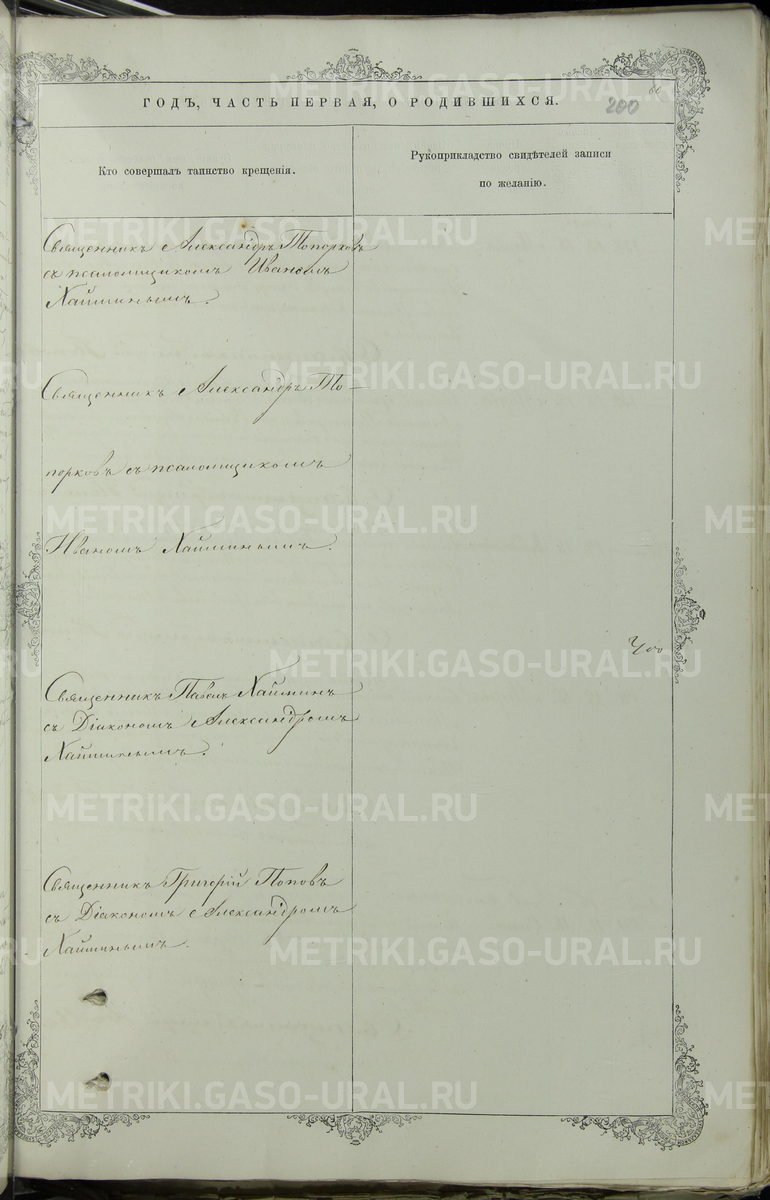 60
200
ГОДЪ, ЧАСТЬ ПЕРВАЯ, О РОДИВШИХСЯ.
Кто совершалъ таинство крещенія.
Рукоприкладство свидѣтелей записи
по желанію.
Священникъ Александръ Топорковъ
съ псаломщикомъ Иваномъ
Хайминымъ.
Священникъ Александръ То-
порковъ съ псаломщикомъ
Иваномъ Хайминымъ.
Священникъ Павелъ Хайминъ
съ Діакономъ Александромъ
Хайминымъ.
Священникъ Григорій Поповъ
съ Діакономъ Александромъ
Хайминымъ.
METRIKI.GASO-URAL.RU